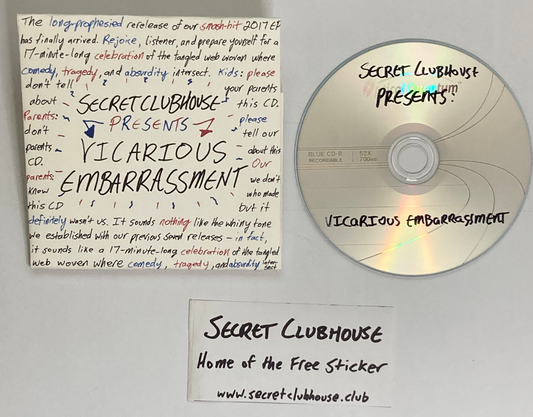 The long-prophesied rerelease of our smash-hit 2017 EP
has finally arrived. Rejoice, listener, and prepare yourself for a
17-minute-long celebration of the tangled web woven where
comedy, tragedy, and absurdity intersect. Kids: please
don't tell your parents
about this CD.
Parents: please
don't tell our
parents about this
CD. Our
parents we don't
know who made
this CD but it
SECRET CLUBHOUSE
PRESENTS
VICARIOUS
EMBARRASSMENT
definitely wasn't us. It sounds nothing like the whiny tone
we established with our previous seven releases – in fact,
it sounds like a 17-minute-long celebration of the tangled
web woven where comedy, tragedy, and absurdity intersect
SECRET CLUBHOUSE
PRESENTS:
BLUE CD-R
RECORDABLE
52X
700MB
VICARIOUS EMBARRASSMENT
SECRET CLUBHOUSE
Home of the Free Sticker
www.secretclubhouse.club